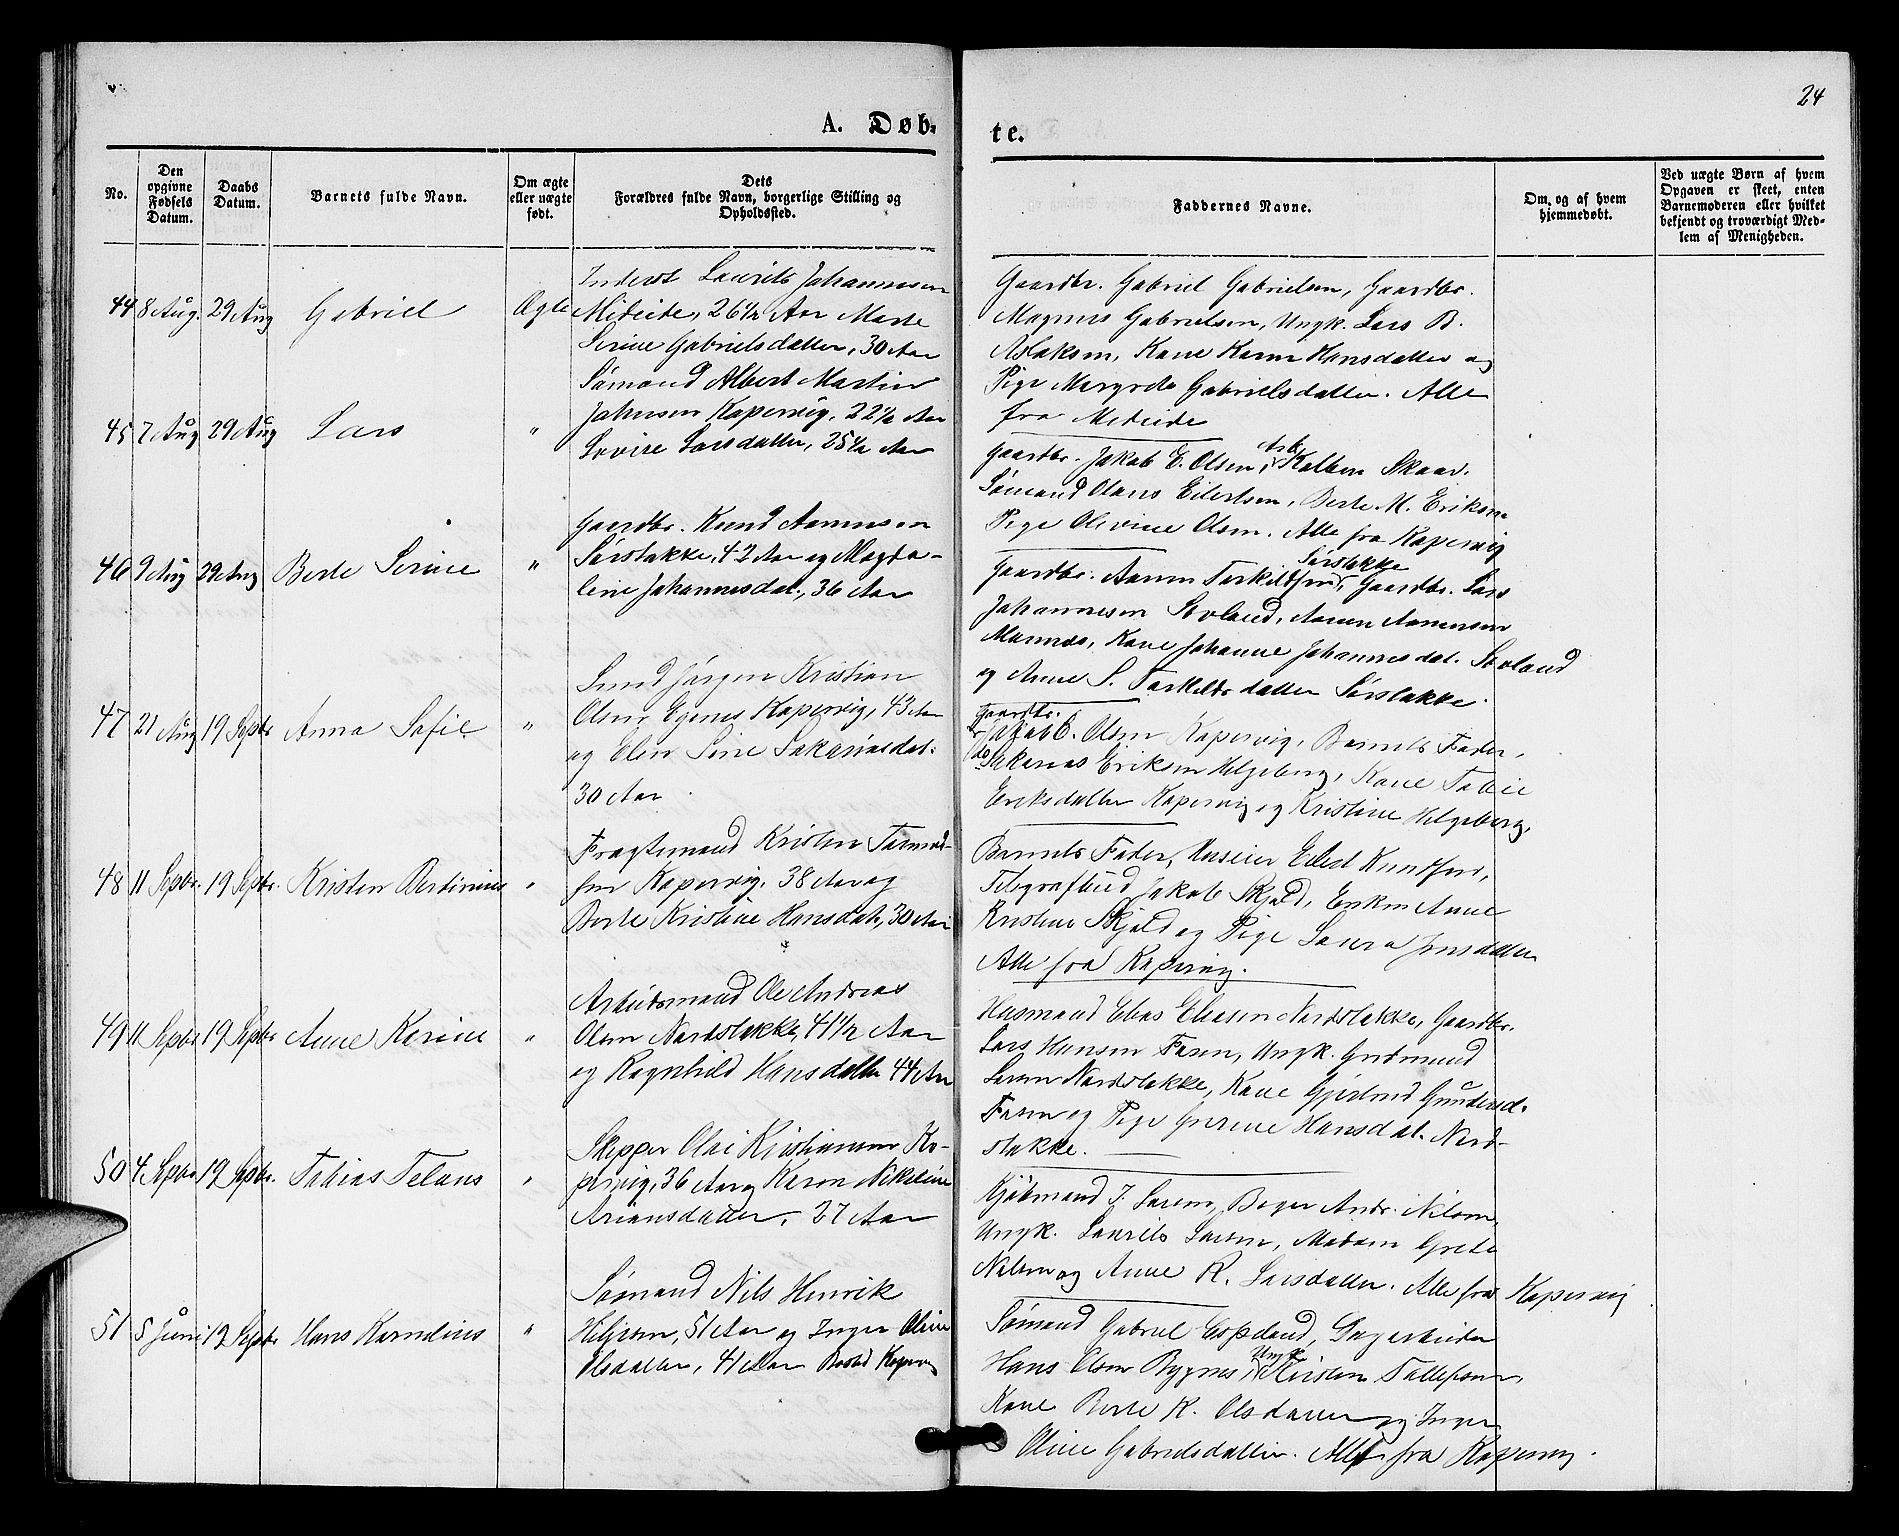 24
A. Døb-
te.
No.
Den
opgivne
Fødsels
Datum.
Daabs
Datum.
Barnets fulde Navn.
Om ægte
eller uægte
født.
Dets
Forældres fulde Navn, borgerlige Stilling og
Opholdssted.
Faddernes Navne.
Om, og af hvem
hjemmedøbt.
Ved uægte Børn af hvem
Opgaven er skeet, enten
Barnemoderen eller hvilket
bekjendt og troværdigt Med-
lem af Menigheden.
44 8 Aug. 29 Aug Gabriel Ægte
Inderst Laurits Johannesen
Mideide, 26 1/2 Aar Marte
Serine Gabrielsdatter, 30 Aar
Gaardbr. Gabriel Gabrielsen, Gaardbr.
Magnus Gabrielsen, Ungk. Lars B.
Aslaksen, Kone Karen Hansdatter og
Pige Margrete Gabrielsdatter. Alle
fra Mideide
45 7 Aug 29 Aug Lars "
Sømand Albert Martin
Johnsen Kopervig, 22 1/2 Aar
Lovise Larsdatter, 25 1/2 Aar
Gaardbr. Jakob E. Olsen, Arb. Kolben Skaar.
Sømand Olaus Eilertsen, Berte M. Eriksen
Pige Olevine Olsen. Alle fra Kopervig
46 9 Aug 29 Aug Berte Serine "
Gaardbr. Knud Aamunsen
Sørstokke, 42 Aar og Magda-
lene Johannesdat., 36 Aar
Gaardbr. Aamun Torkildsen Sørstokke, Gaardbr. Lars
Johannesen Sovland, Aamun Aamunsen
Mannes, Kone Johanne Johannesdat. Sovland
og Anne S. Torkildsdatter Sørstokke.
47 21 Aug 19 Septbr Anna Sofie "
Smed Jørgen Kristian
Olsen Egenes Kopervig, 43 Aar
og Elen Sine Sakariasdat.
30 Aar
Gaardbr.
Jakob E. Olsen Kopervig, Barnets Fader,
Sakarias Eriksen Helgeberg, Kone Tobie
Eriksdatter Kopervig og Kristine Helgeberg,
48 11 Septbr. 19 Septbr. Kristen Bertinius "
Fragtemand Kristen Tormod-
sen Kopervig, 38 Aar og
Berte Kristine Hansdat., 30 Aar
Barnets Fader, Huseier Eilert Knudsen,
Telegrafbud Jakob Skjold, Enken Anne
Kristine Skjold og Pige Laura Jensdatter
Alle fra Kopervig.
49 11 Septbr 19 Septbr Anne Karine "
Arbeidsmand Ole Andreas
Olsen Nordstokke, 41 1/2 Aar
og Ragnhild Hansdatter 44 Aar
Husmand Elias Eliasen Nordstokke, Gaardbr.
Lars Hansen Fosen, Ungk. Gudmund
Larsen Nordstokke, Kone Gjertrud Gundersd.
Fosen og Pige Gurine Hansdat. Nord-
stokke.
50 4 Septbr 19 Septbr. Tobias Telaus "
Skipper Olai Kristiansen Ko-
pervig, 36 Aar og Karen Nikoline
Ariansdatter, 27 Aar
Kjøbmand J. Larsen, Bager Andr. Nilsen,
Ungk. Laurits Larsen, Madam Grete
Nilsen og Anne R. Larsdatter. Alle fra Kopervig
51 5 Juni 19 Septbr Hans Kornelius "
Sømand Nils Henrik
Hiljesen, 51 Aar og Inger Oline
Olsdatter, 41 Aar Bosted Kopervig
Sømand Gabriel Copdand, Dagarbeider
Hans Olsen Bygnes, Ungk. Kirsten Tollefsen,
Kone Berte K. Olsdatter og Inger
Oline Gabrielsdatter. Alle fra Kopervig.